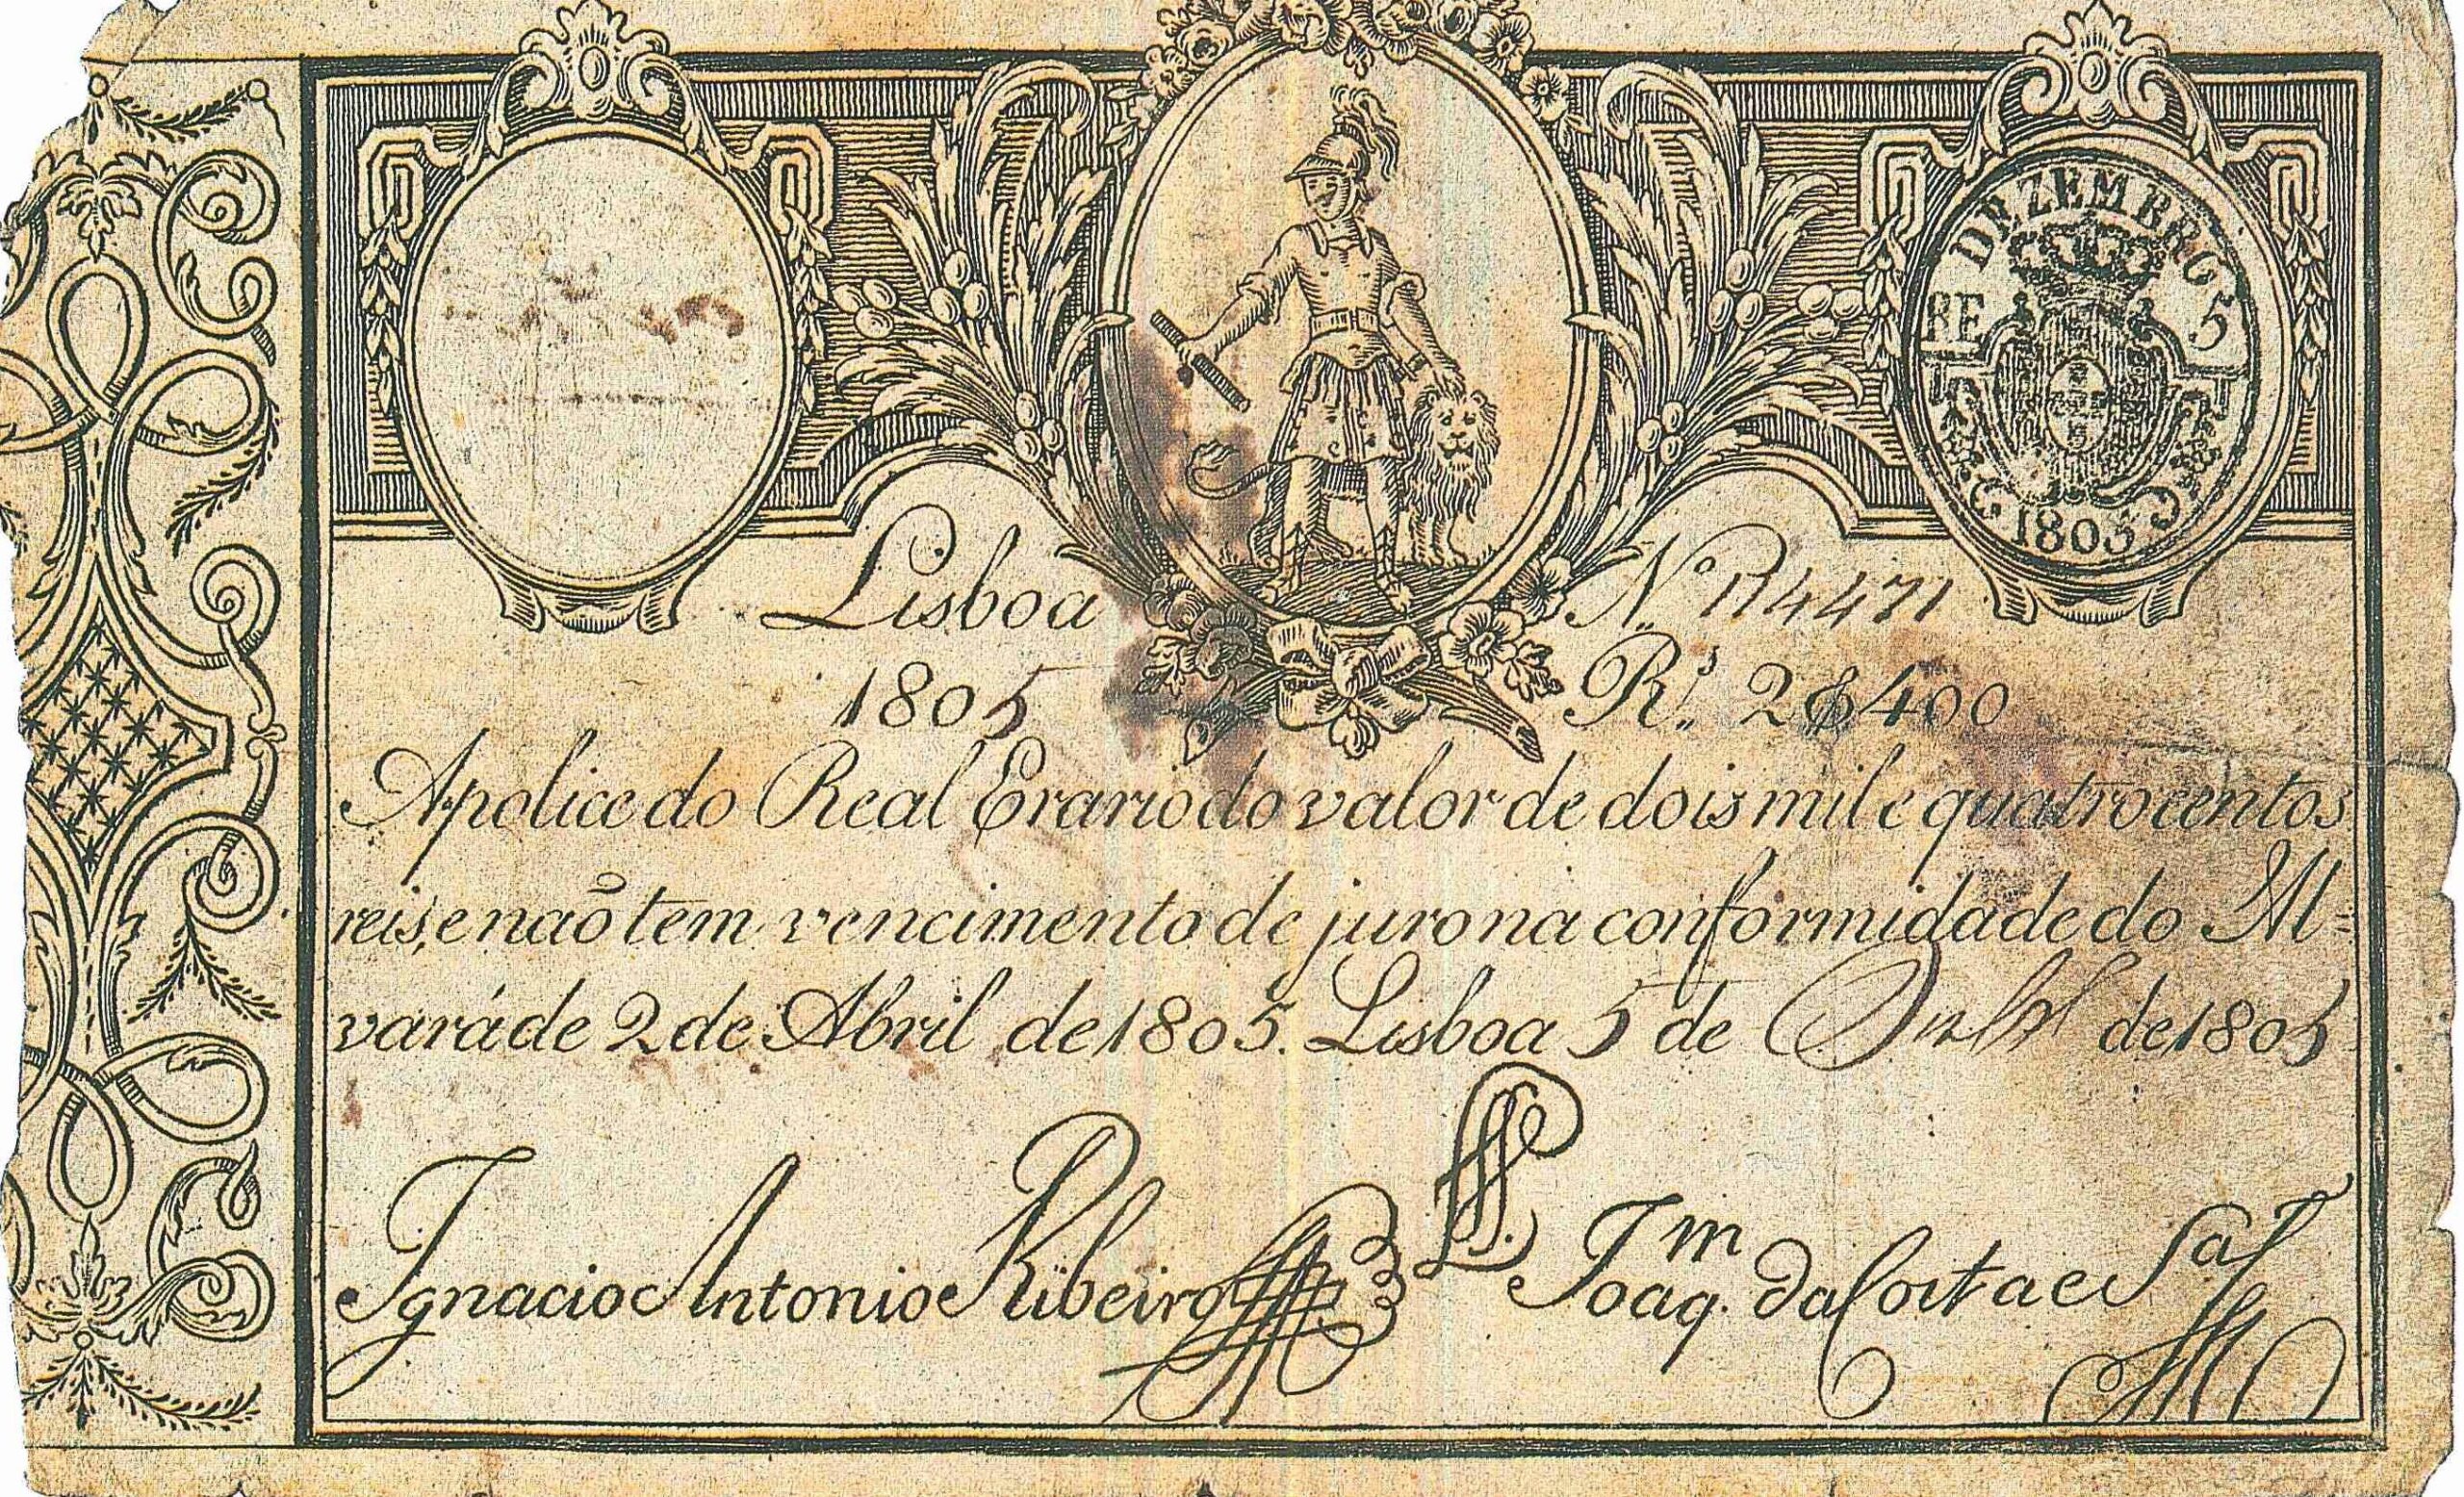 DEZEMBRO 5
RE
1805
Lisboa
Nº
1805
Rˢ. 2$400
Apolice do Real Erario do valor de dois mil e quatrocentos
reis, e naõ tem vencimento de juro na conformidade do Al=
vará de 2 de Abril de 1805. Lisboa 5 de de 1805
Ignacio Antonio Ribeiro
Joaqᵐ. da Costa e